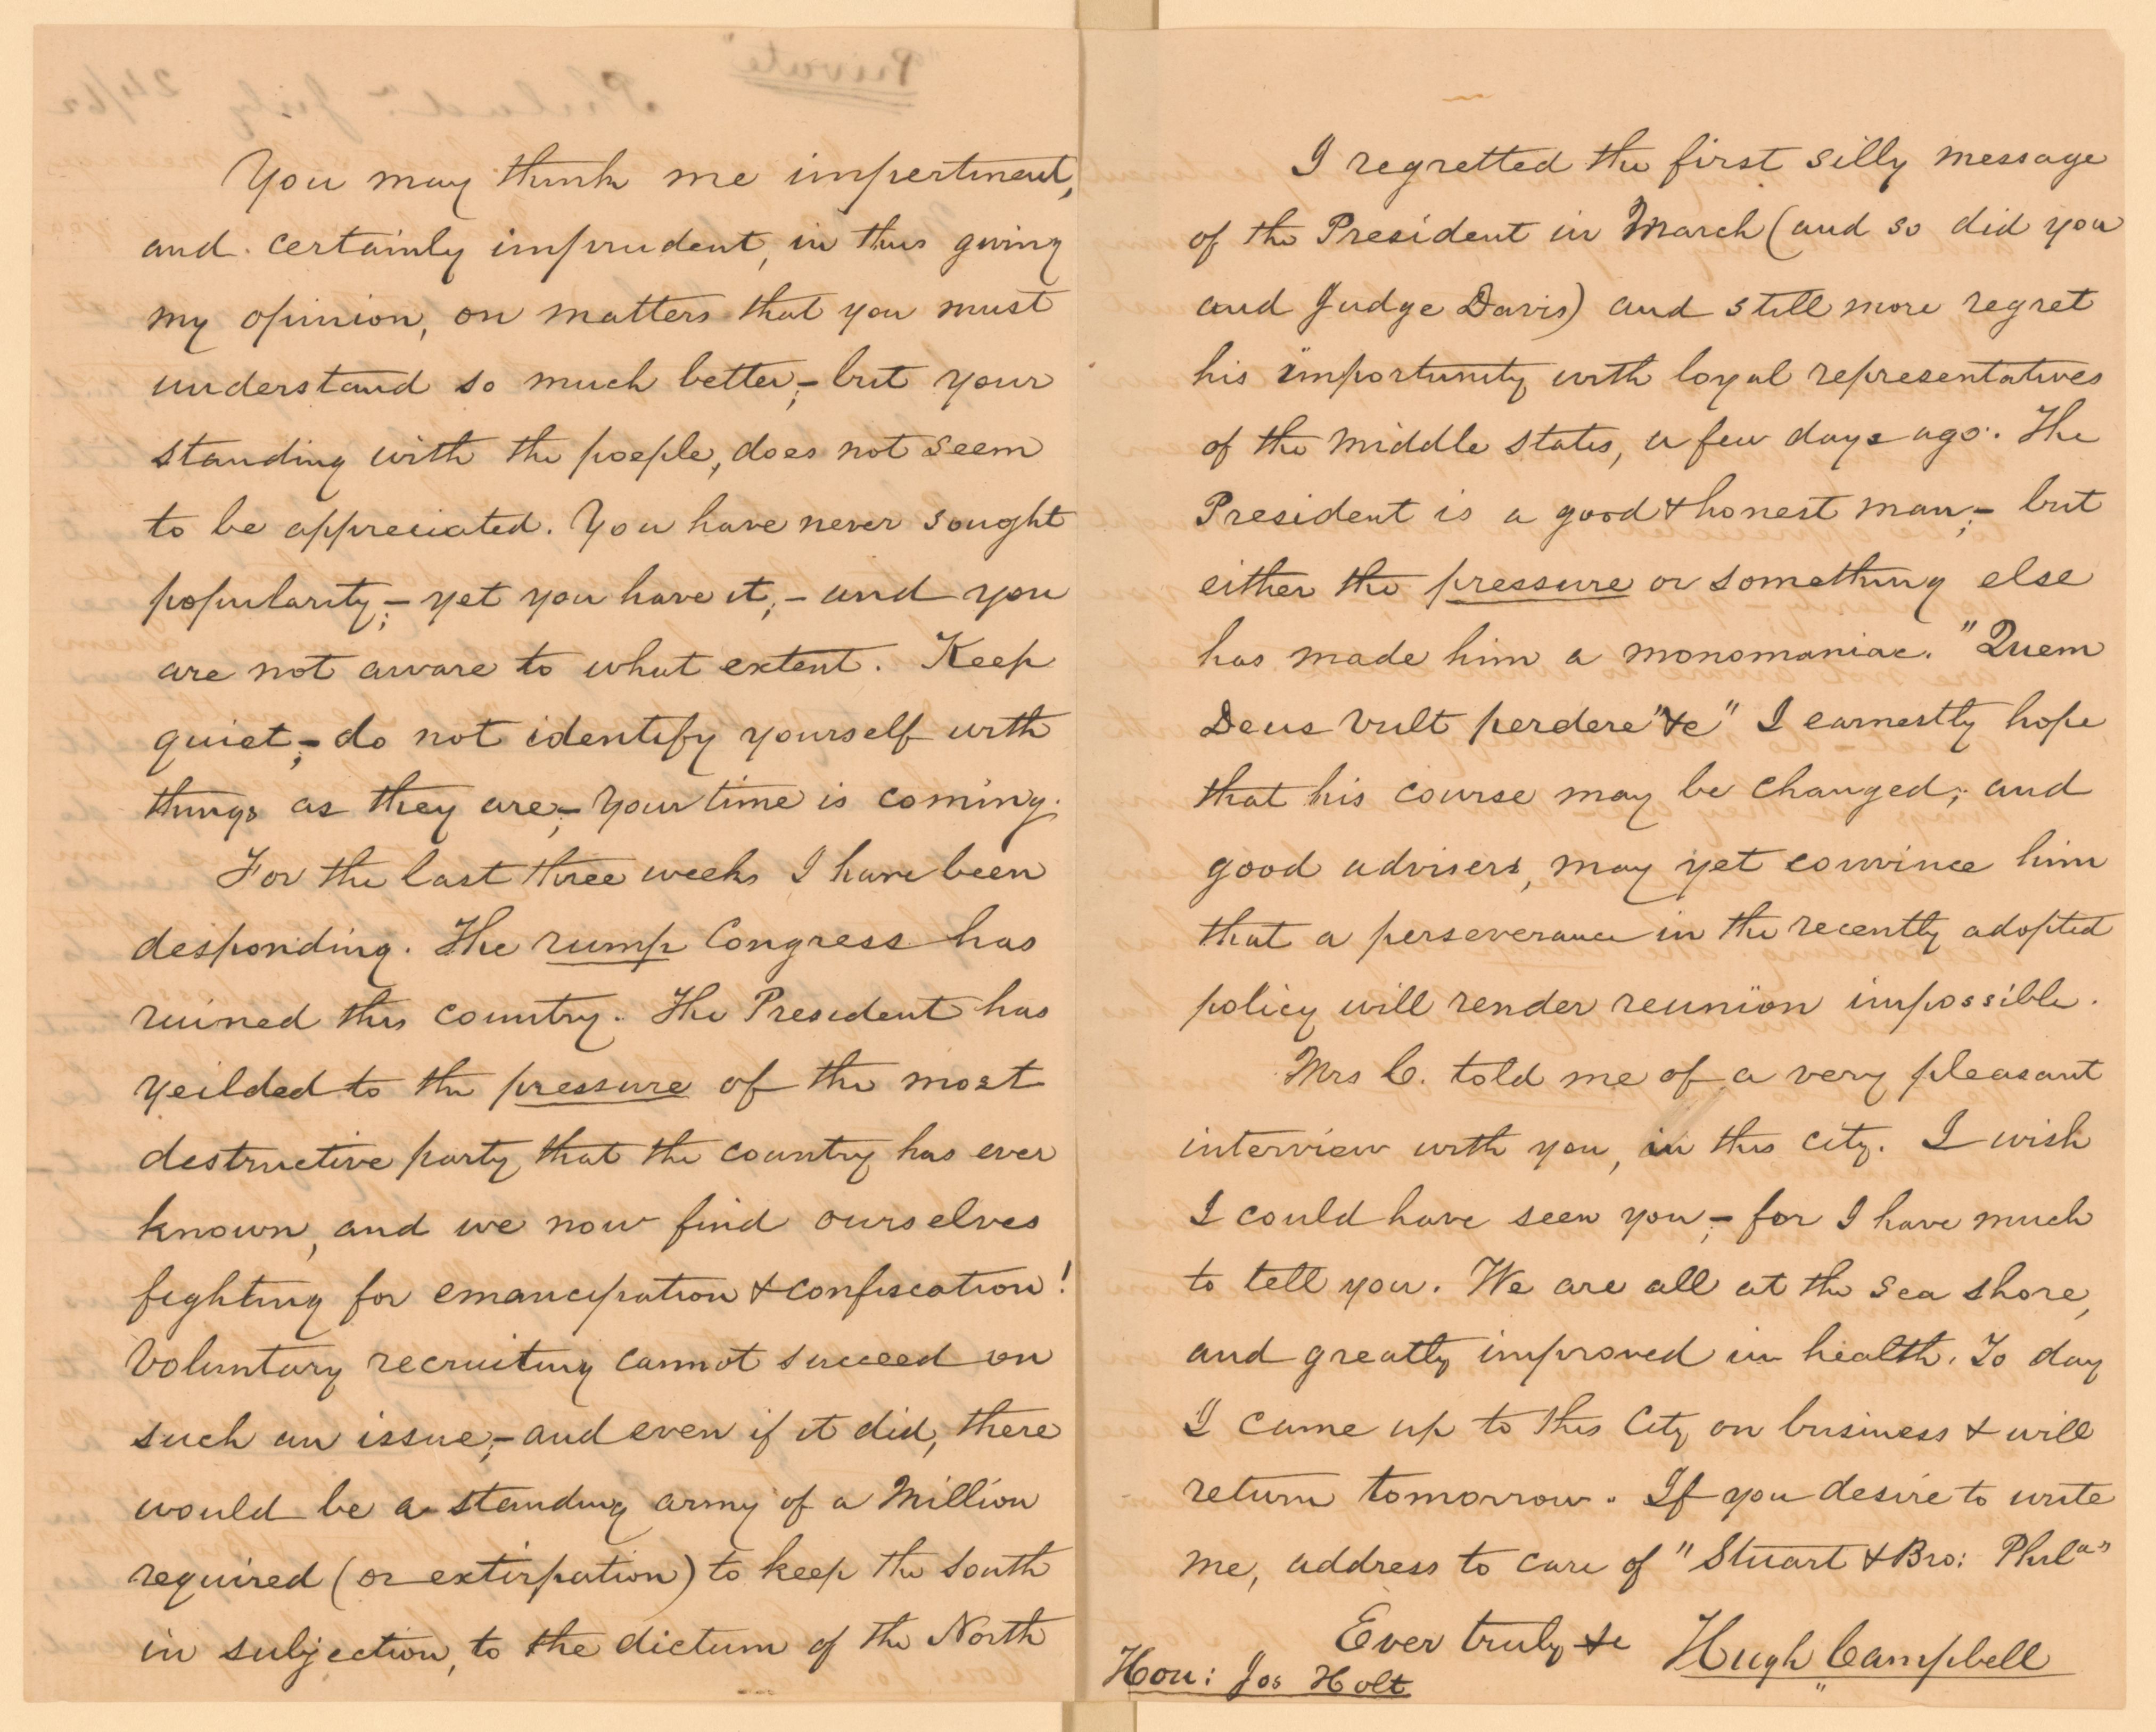 You may think me impertinent,
and certainly imprudent, in thus giving
my opinion, on matters that you must
understand so much better;- but your
standing with the poeple, does not seem
to be appreciated. You have never sought
popularity;- yet you have it,- and you
are not aware to what extent. Keep
quiet;- do not identify yourself with
things as they are;- your time is coming.
For the last three weeks I have been
desponding. The rump Congress has
ruined this country. The President has
yeilded to the pressure of the most
destructive party that the country has ever
known, and we now find ourselves
fighting for emancipation & confiscation!
Voluntary recruiting cannot succeed on
such an issue;- and even if it did, there
would be a standing army of a Million
required (or extirpation) to keep the South
in subjection, to the dictum of the North
I regretted the first silly message
of the President in March (and so did you
and Judge Davis) and still more regret
his importunity with loyal representatives
of the Middle States, a few days ago. The
President is a good & honest man;- but
either the pressure or something else
has made him a monomaniac. "Quem
Deus vult perdere "&c" I earnestly hope
that his course may be changed; and
good advisers, may yet convince him
that a perseverance in the recently adopted
policy will render reunion impossible.
Mrs C. told me of a very pleasant
interview with you, in this city. I wish
I could have seen you;- for I have much
to tell you. We are all at the Sea Shore,
and greatly improved in health. To day
I came up to this City on business & will
return tomorrow. If you desire to write
me, address to care of "Stuart & Bro: Phila"
Ever truly &c Hugh Campbell
Hon: Jos Holt
"Private"
Philada July 24/62